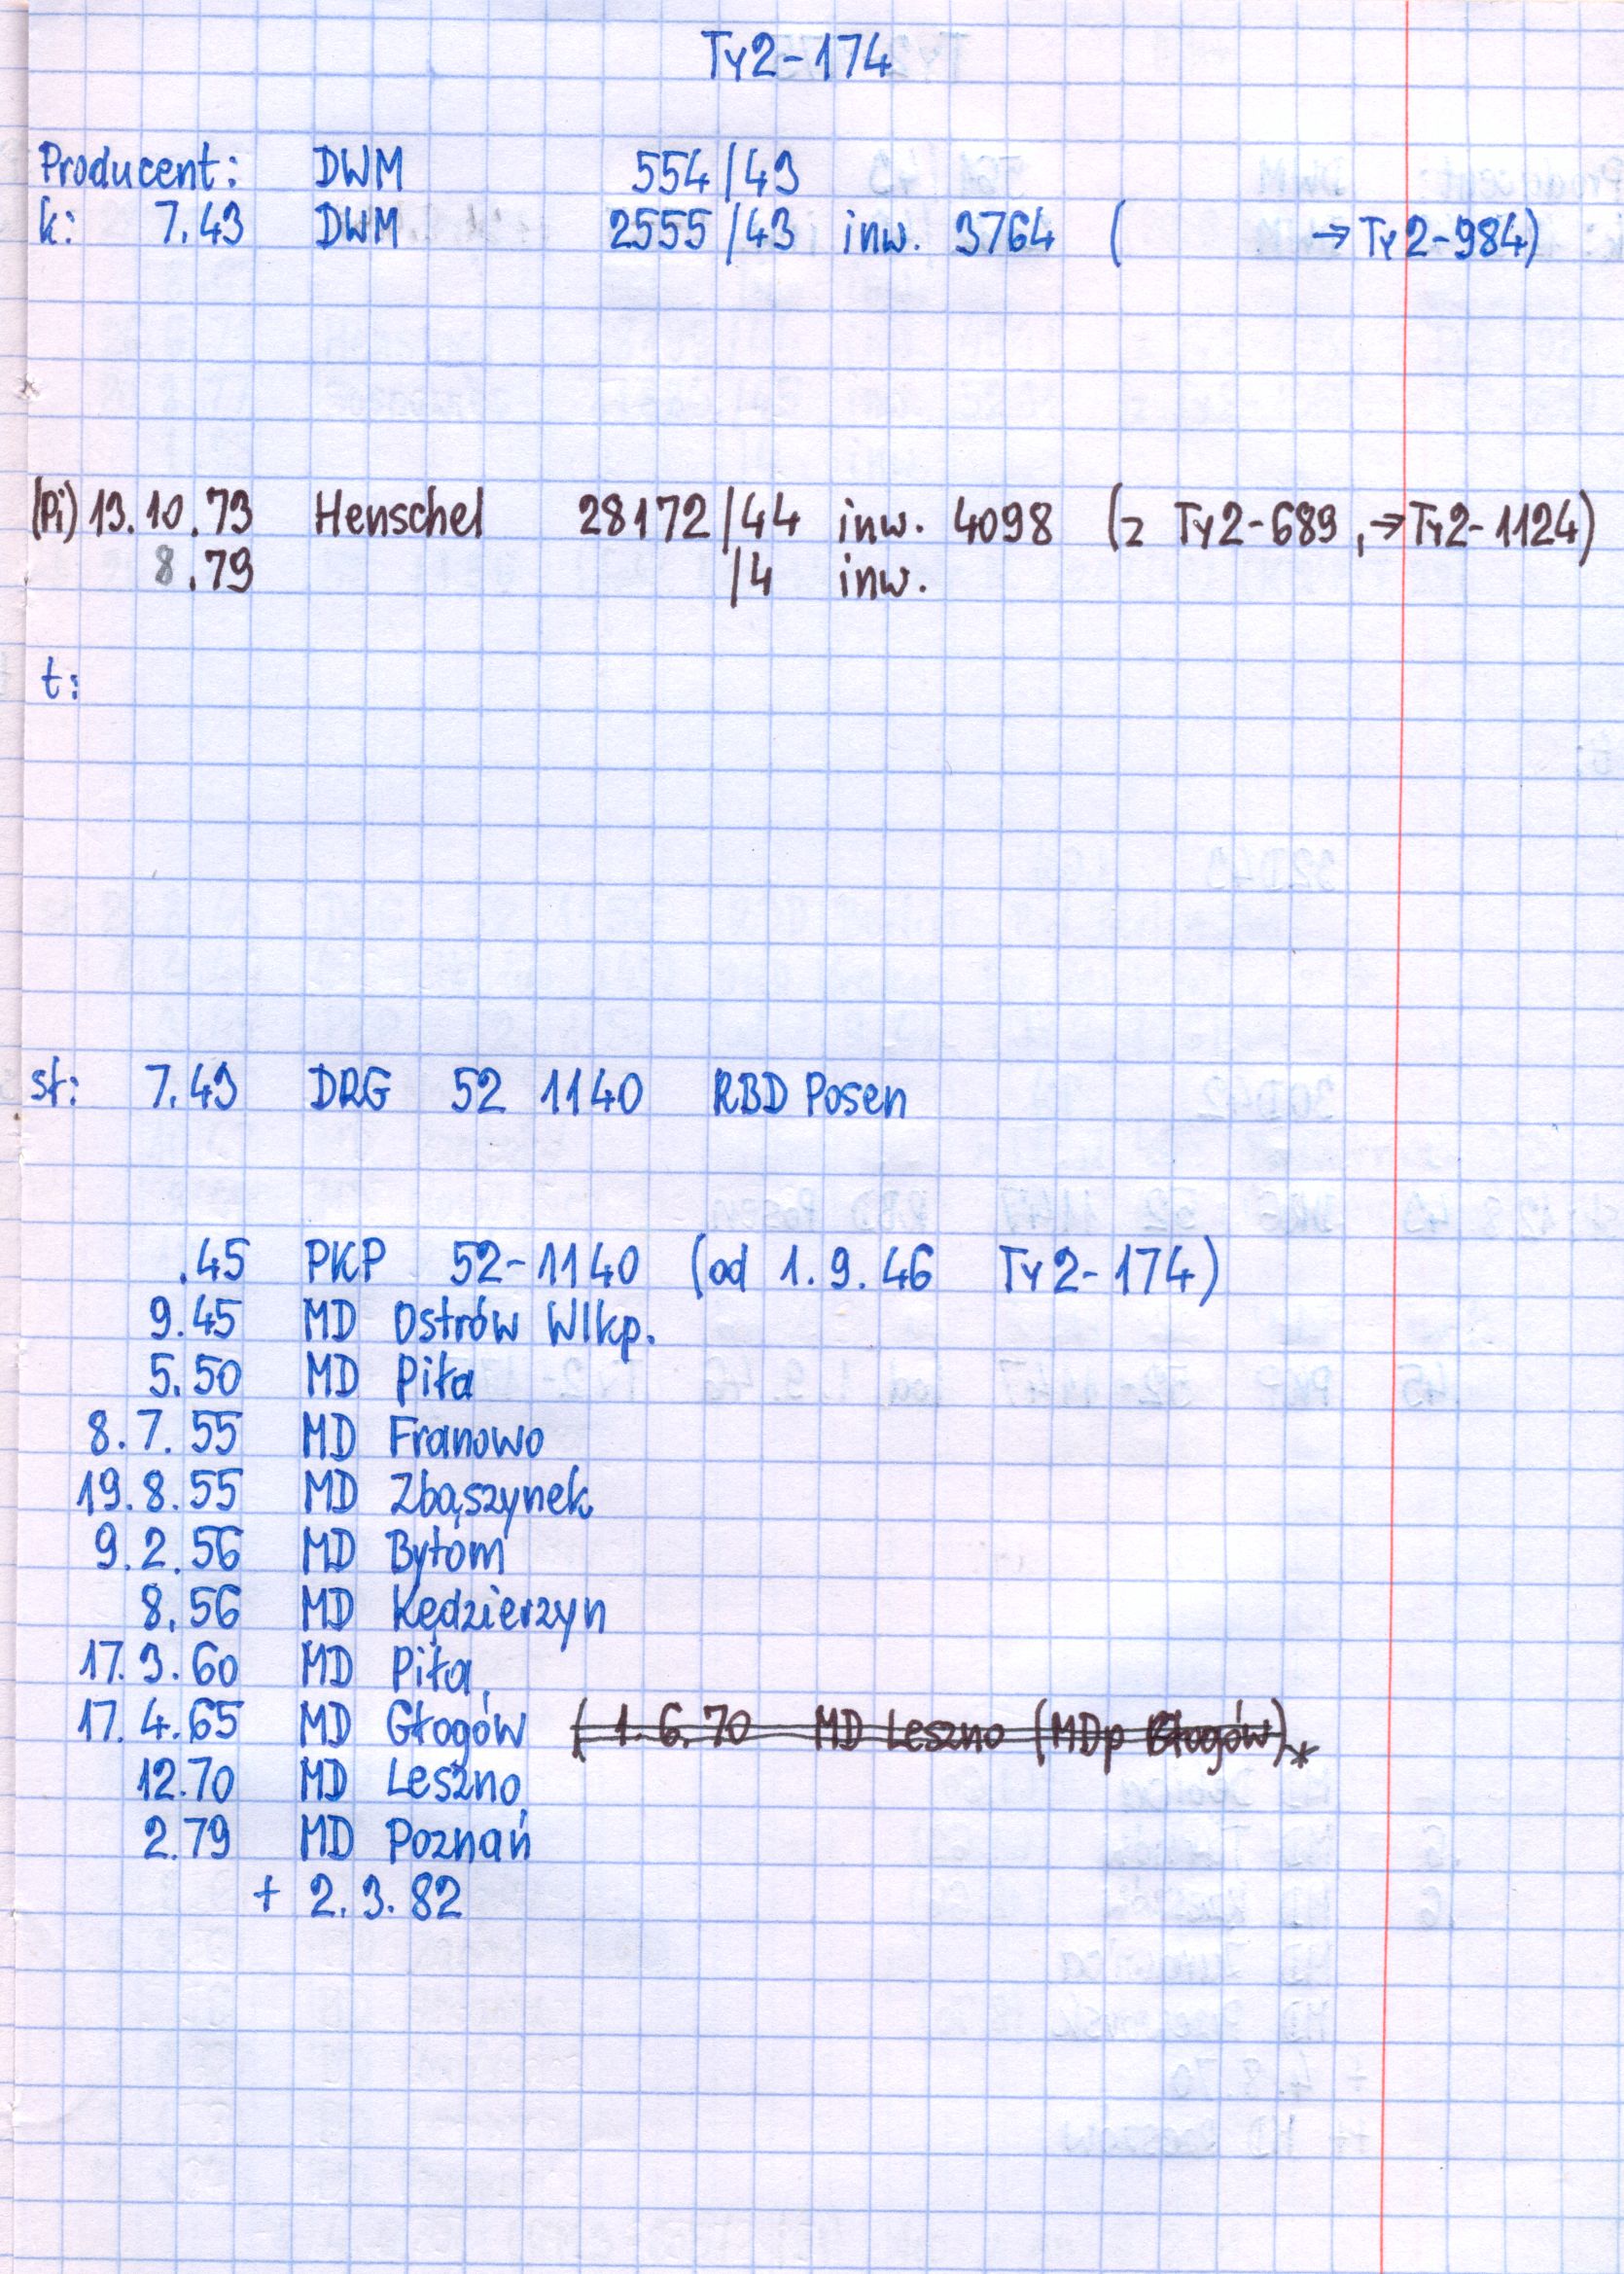 Ty2-174
Producent: DWM 554/43
k: 7.43 DWM 2555/43 inw. 3764 ( → Ty2-984)
(Pi) 13.10.73 Henschel 28172/44 inw. 4098 (z Ty2-689, → Ty2-1124)
8.79 /4 inw.
t:
st: 7.43 DRG 52 1140 RBD Posen
.45 PKP 52-1140 (od 1.9.46 Ty2-174)
9.45 MD Ostrów Wlkp.
5.50 MD Piła
8.7.55 MD Franowo
19.8.55 MD Zbąszynek
9.2.56 MD Bytom
8.56 MD Kędzierzyn
17.3.60 MD Piła
17.4.65 MD Głogów ( 1.6.70 MD Leszno (MDp Głogów) *
12.70 MD Leszno
2.79 MD Poznań
+ 2.3.82